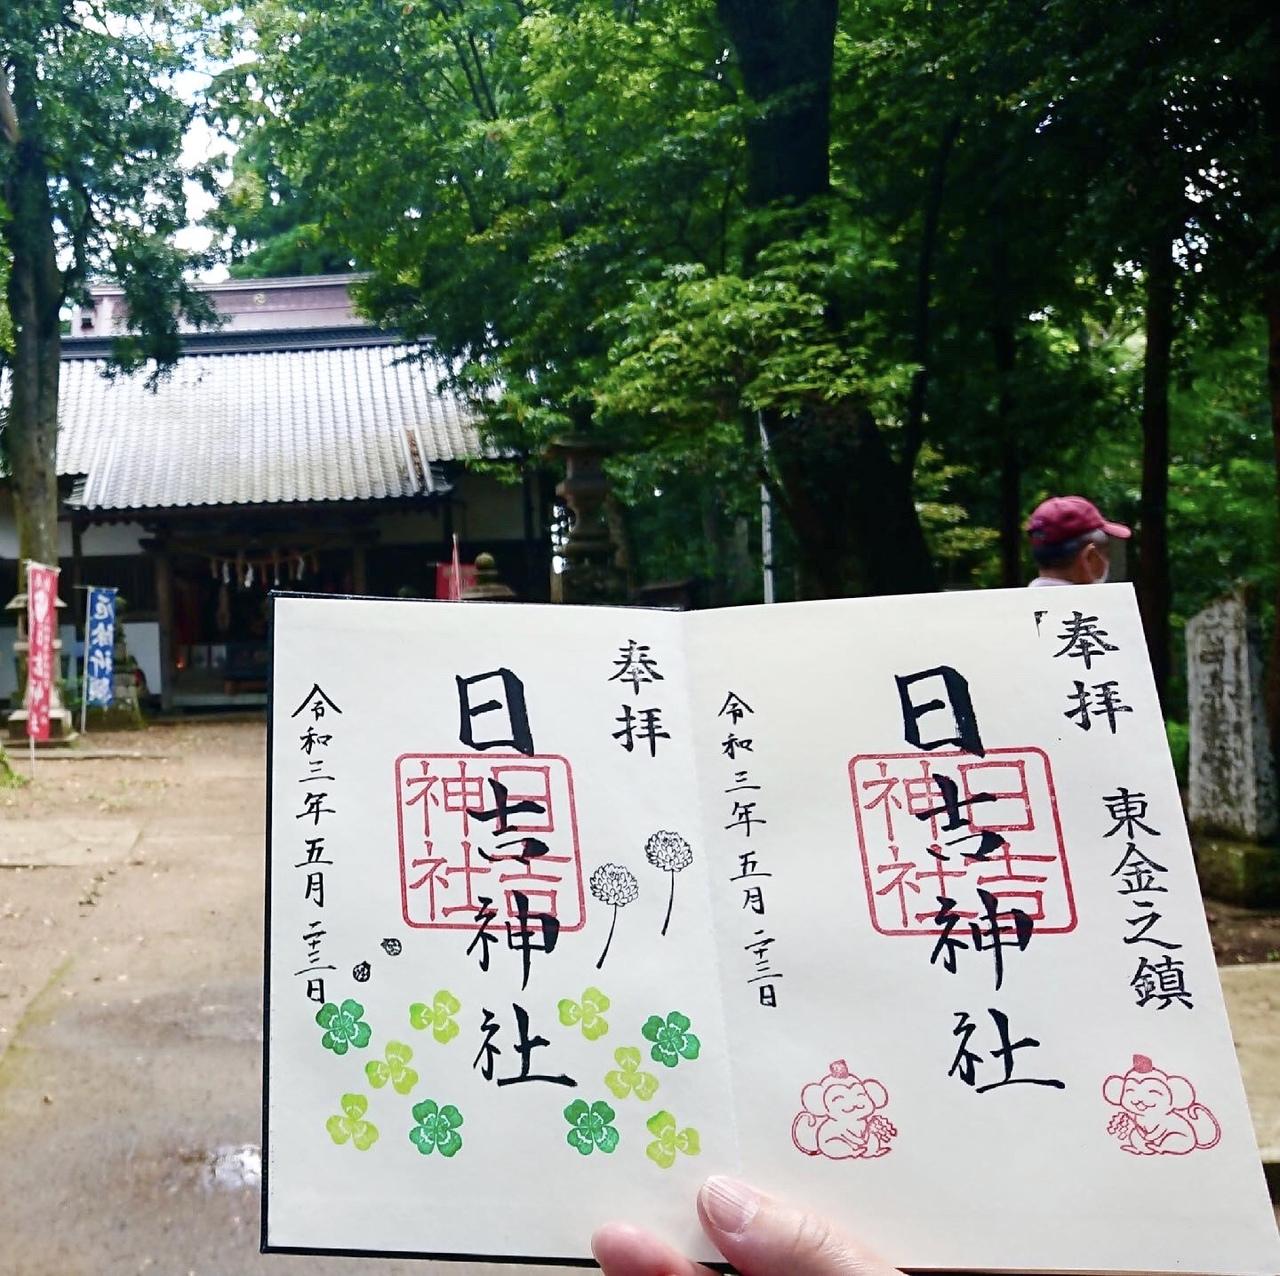 奉拝
東金之鎮
日吉神社
日吉神社
令和三年五月二十三日
奉拝
日吉神社
日吉神社
令和三年五月二十三日
厄除祈願